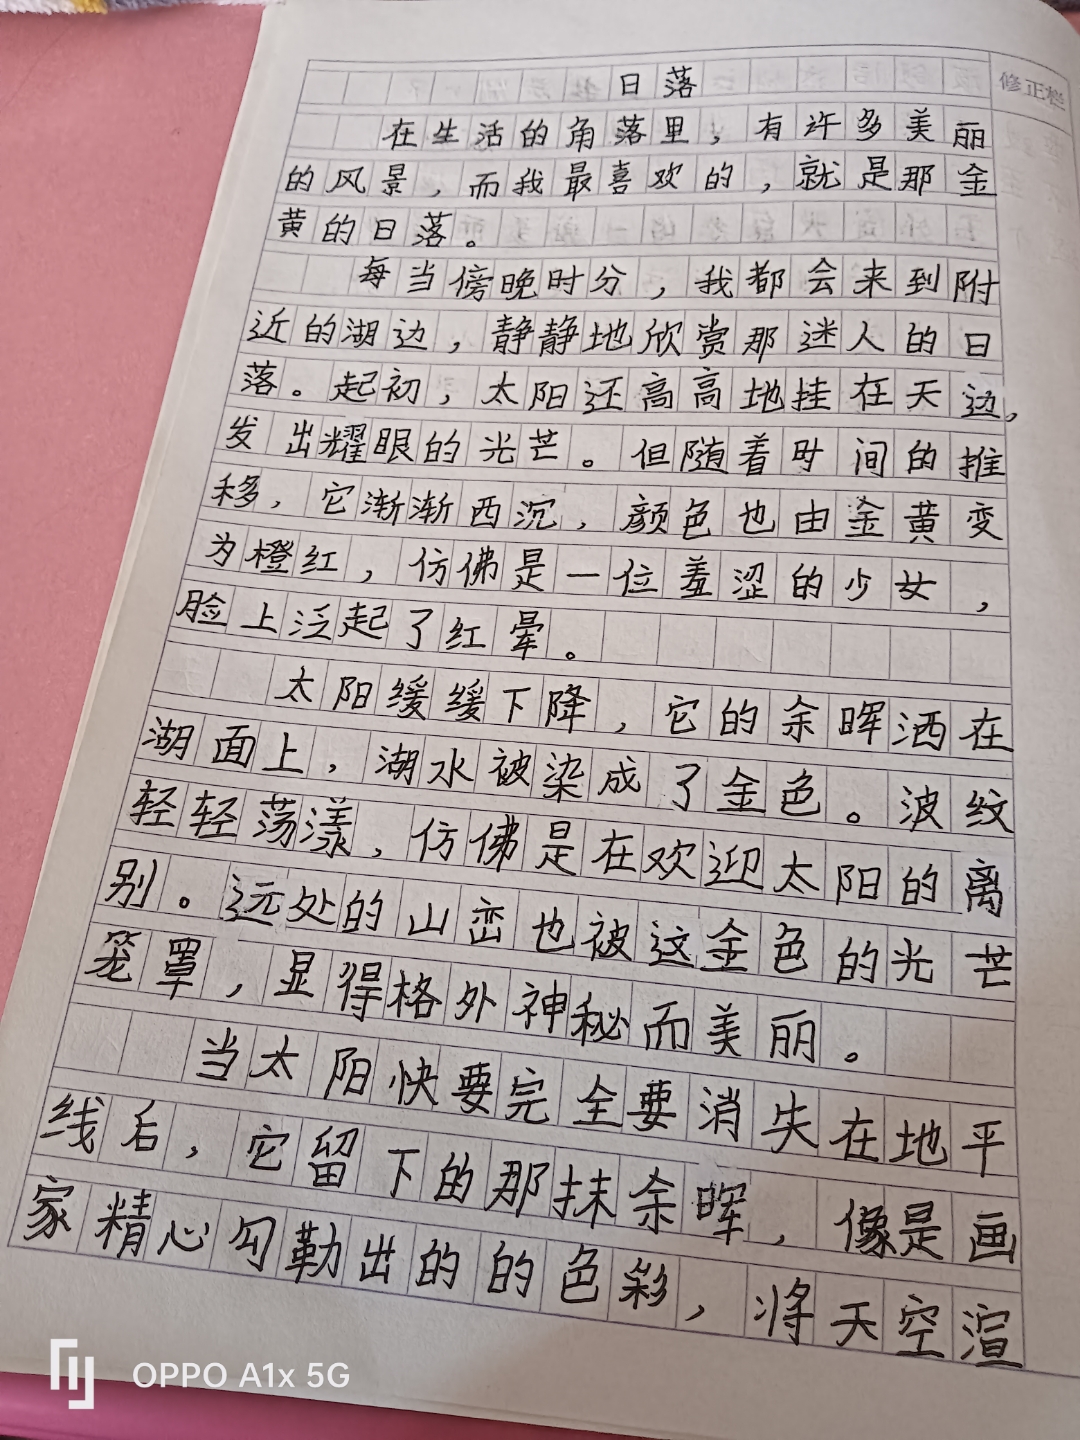 修正栏
日落
在生活的角落里，有许多美丽
的风景，而我最喜欢的，就是那金
黄的日落。
每当傍晚时分，我都会来到附
近的湖边，静静地欣赏那迷人的日
落。起初，太阳还高高地挂在天边，
发出耀眼的光芒。但随着时间的推
移，它渐渐西沉，颜色也由金黄变
为橙红，仿佛是一位羞涩的少女，
脸上泛起了红晕。
太阳缓缓下降，它的余晖洒在
湖面上，湖水被染成了金色。波纹
轻轻荡漾，仿佛是在欢迎太阳的离
别。远处的山峦也被这金色的光芒
笼罩，显得格外神秘而美丽。
当太阳快要完全要消失在地平
线后，它留下的那抹余晖，像是画
家精心勾勒出的的色彩，将天空渲
OPPO A1x 5G